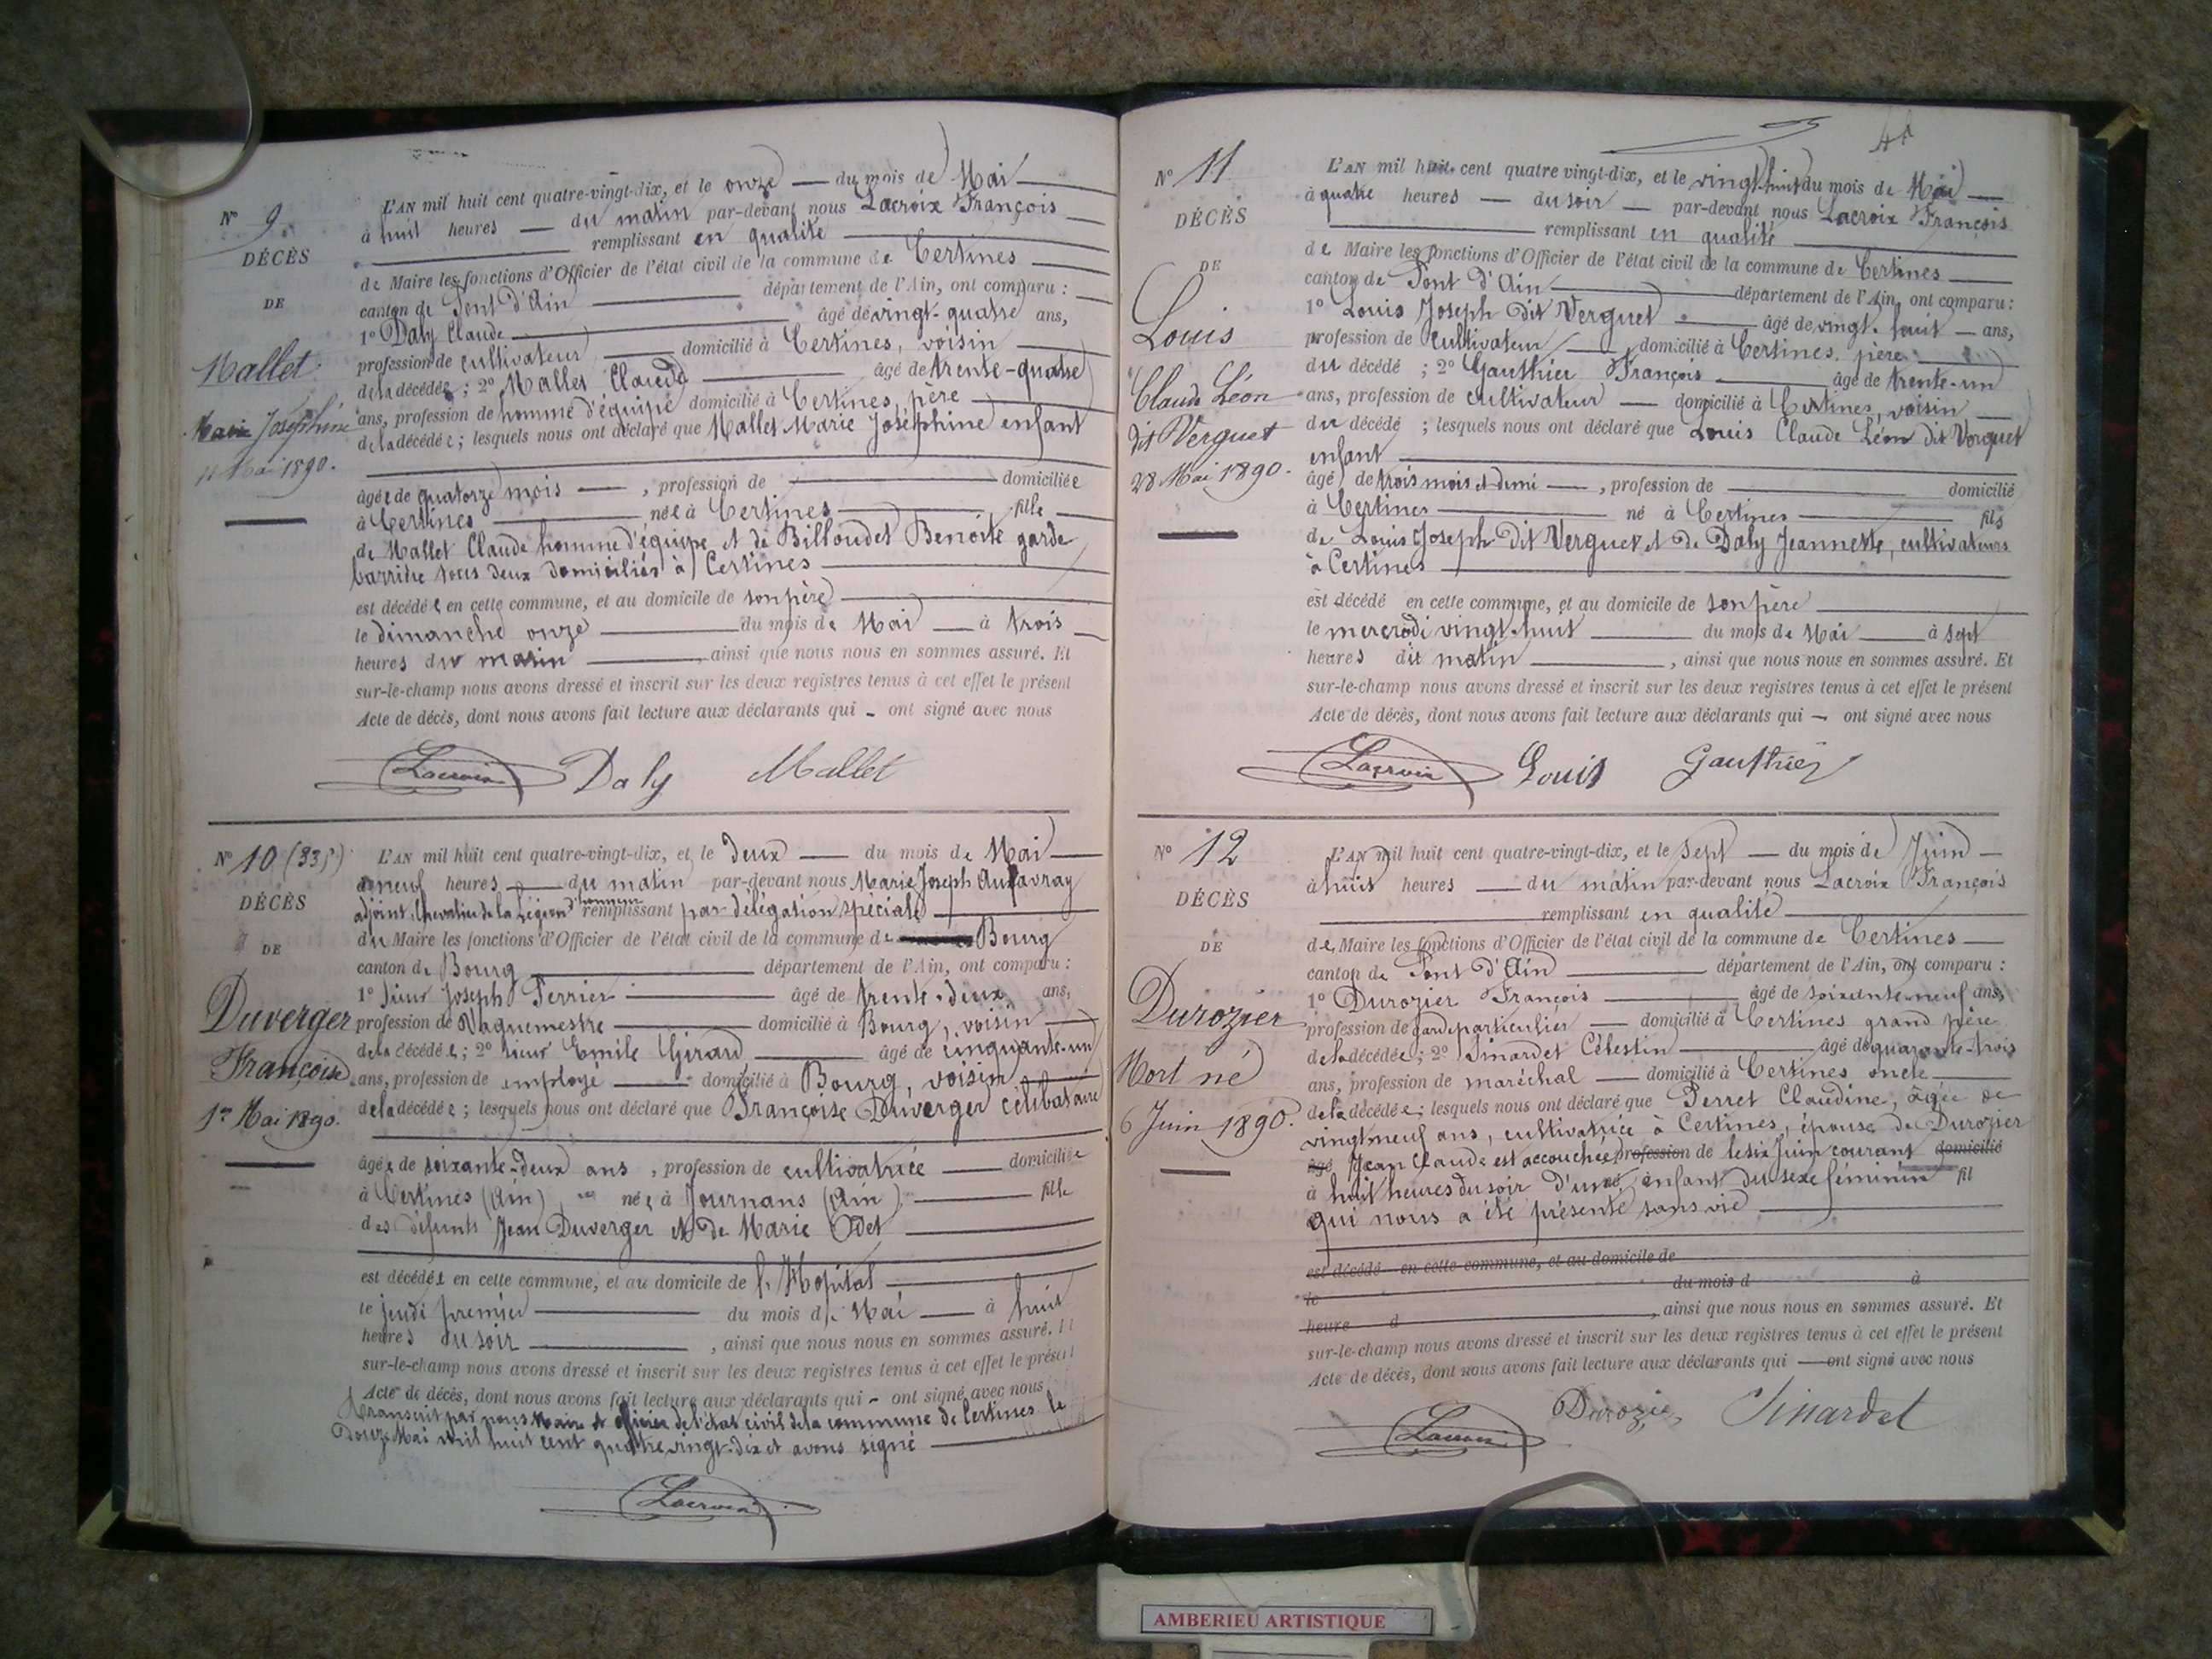 N° 9.
DÉCÈS
DE
Mallet
Marie Joséphine
11 Mai 1890.
L'AN mil huit cent quatre-vingt-dix, et le onze — du mois de Mai
à huit heures — du matin par-devant nous Lacroix François
remplissant en qualité
de Maire les fonctions d'Officier de l'état civil de la commune de Certines
canton de Pont d'Ain département de l'Ain, ont comparu :
1° Daly Claude âgé de vingt-quatre ans,
profession de cultivateur domicilié à Certines, voisin
de la décédée ; 2° Mallet Claude âgé de trente-quatre
ans, profession de homme d'équipe domicilié à Certines, père
de la décédée ; lesquels nous ont déclaré que Mallet Marie Joséphine enfant
âgée de quatorze mois — , profession de domiciliée
à Certines née à Certines fille
de Mallet Claude homme d'équipe et de Billoudet Benoite garde
barrière tous deux domiciliés à Certines
est décédée en cette commune, et au domicile de son père
le dimanche onze du mois de Mai à trois
heures du matin , ainsi que nous nous en sommes assuré. Et
sur-le-champ nous avons dressé et inscrit sur les deux registres tenus à cet effet le présent
Acte de décès, dont nous avons fait lecture aux déclarants qui - ont signé avec nous
Lacroix Daly Mallet
N° 10 (33)
DÉCÈS
DE
Duverger
Françoise
1er Mai 1890.
L'AN mil huit cent quatre-vingt-dix, et le deux — du mois de Mai
à neuf heures — du matin par-devant nous Marie Joseph
adjoint, Chevalier de la Légion d'honneur remplissant par délégation spéciale
du Maire les fonctions d'Officier de l'état civil de la commune de Bourg
canton de Bourg département de l'Ain, ont comparu :
1° sieur Joseph Perrier âgé de trente-deux ans,
profession de Vaguemestre domicilié à Bourg, voisin
de la décédée ; 2° sieur Emile Girard âgé de cinquante-un
ans, profession de employé domicilié à Bourg, voisin
de la décédée ; lesquels nous ont déclaré que Françoise Duverger célibataire
âgée de soixante-deux ans , profession de cultivatrice domiciliée
à Certines (Ain) née à Journans (Ain) fille
des défunts Jean Duverger et de Marie Odet
est décédée en cette commune, et au domicile de l'Hôpital
le jeudi premier du mois de Mai à huit
heures du soir , ainsi que nous nous en sommes assuré. Et
sur-le-champ nous avons dressé et inscrit sur les deux registres tenus à cet effet le présent
Acte de décès, dont nous avons fait lecture aux déclarants qui - ont signé avec nous
Transcrit par nous Maire et officier de l'état civil de la commune de Certines le
douze Mai mil huit cent quatre vingt-dix et avons signé
Lacroix
N° 11
DÉCÈS
DE
Louis
Claude Léon
dit Verguet
28 Mai 1890.
L'AN mil huit cent quatre vingt-dix, et le vingt-huit du mois de Mai
à quatre heures — du soir — par-devant nous Lacroix François
remplissant en qualité
de Maire les fonctions d'Officier de l'état civil de la commune de Certines
canton de Pont d'Ain département de l'Ain, ont comparu :
1° Louis Joseph dit Verguet âgé de vingt-huit — ans,
profession de Cultivateur domicilié à Certines, père
du décédé ; 2° Gauthier François âgé de trente-un
ans, profession de cultivateur — domicilié à Certines, voisin
du décédé ; lesquels nous ont déclaré que Louis Claude Léon dit Verguet
enfant
âgé de trois mois et demi — , profession de domicilié
à Certines né à Certines fils
de Louis Joseph dit Verguet et de Daly Jeannette, cultivateurs
à Certines
est décédé en cette commune, et au domicile de son père
le mercredi vingt-huit du mois de Mai à sept
heures du matin , ainsi que nous nous en sommes assuré. Et
sur-le-champ nous avons dressé et inscrit sur les deux registres tenus à cet effet le présent
Acte de décès, dont nous avons fait lecture aux déclarants qui - ont signé avec nous
Lacroix Louis Gauthier
N° 12
DÉCÈS
DE
Durozier
Mort né
6 Juin 1890.
L'AN mil huit cent quatre-vingt-dix, et le sept — du mois de Juin
à huit heures — du matin par-devant nous Lacroix François
remplissant en qualité
de Maire les fonctions d'Officier de l'état civil de la commune de Certines
canton de Pont d'Ain département de l'Ain, ont comparu :
1° Durozier François âgé de soixante-neuf ans,
profession de garde particulier — domicilié à Certines grand père
de la décédée ; 2° Sinardet Célestin âgé de quarante-trois
ans, profession de maréchal — domicilié à Certines oncle
de la décédée ; lesquels nous ont déclaré que Perret Claudine, âgée de
vingt neuf ans, cultivatrice à Certines, épouse de Durozier
âgé Jean Claude est accouchée profession de le six Juin courant domicilié
à huit heures du soir d'un enfant du sexe féminin fil
qui nous a été présenté sans vie
est décédé en cette commune, et au domicile de
le du mois d à
heure d , ainsi que nous nous en sommes assuré. Et
sur-le-champ nous avons dressé et inscrit sur les deux registres tenus à cet effet le présent
Acte de décès, dont nous avons fait lecture aux déclarants qui — ont signé avec nous
Lacroix Durozier Sinardet
AMBERIEU ARTISTIQUE